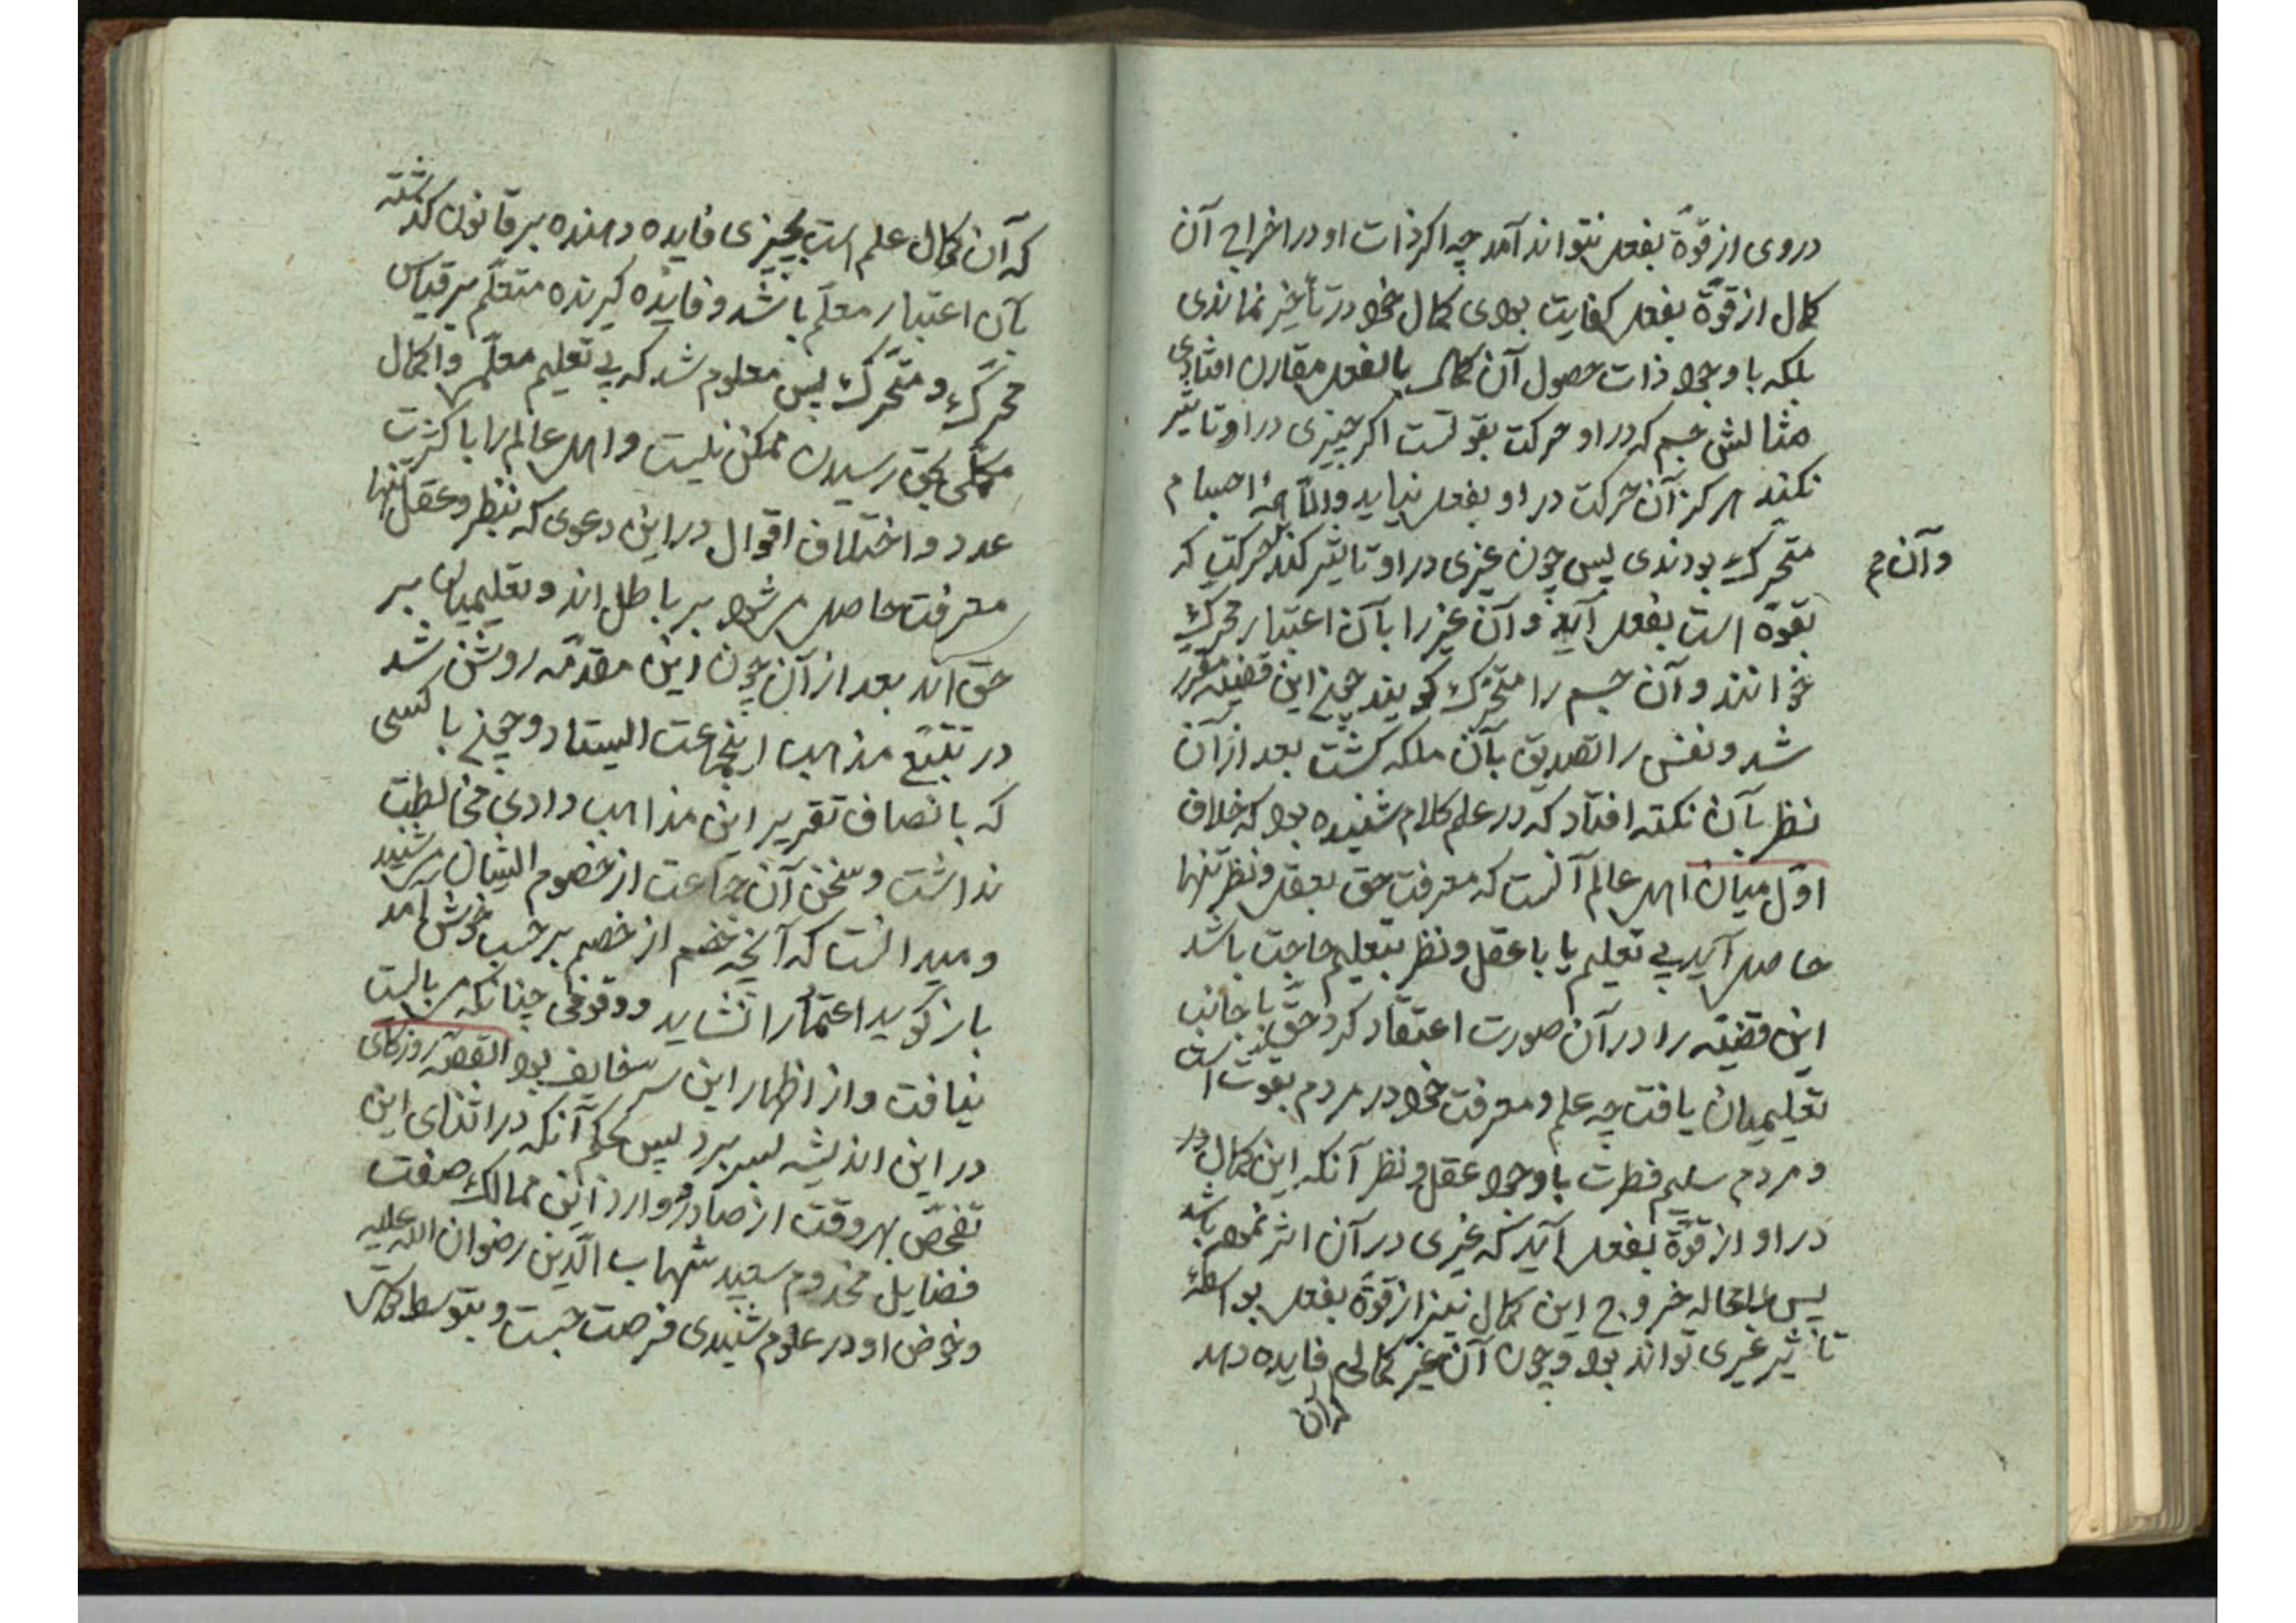 در وی از قوّة بفعل نتواند آمد چه اکر ذات او در اخراج آن
کمال از قوّة بفعل کفایت بودی کمال خود در تأخیر نماندی
بلکه با وجود ذات حصول آن کمال بالفعل مقارن افتادی
مثالش جسم که در او حرکت بقوتست اکر چیزی در او تاثیر
نکند هرکز آن حرکت در او بفعل نیاید والّا همهٔ اجسام
متحرّک بودندی پس چون غیری در او تاثیر کند حرکتی که
وآن م
بقوّه است بفعل آید و آن غیر را بآن اعتبار محرّک
خوانند و آن جسم را متحرّک کویند چون این قضیّه مقرّر
شد و نفس را تصدیق بآن ملکه کشت بعد از آن
نظر بآن نکته افتاد که در علم کلام شنیده بود که خلاف
اوّل میان اهل عالم آنست که معرفت حق بعقل و نظر تنها
حاصل آید بی تعلیم یا با عقل و نظر بتعلیم حاجت باشد
این قضیّه را در آن صورت اعتقاد کرد حقّ با جانب
تعلیمیان یافت چه علم و معرفت خود در مردم بقوت است
و مردم سلیم فطرت باوجود عقل و نظر آنکه این کمال در
در او از قوّة بفعل آید که غیری در آن اثر نموده باشد
پس لامحاله خروج این کمال نیز از قوّة بفعل بواسطهٔ
تاثیر غیری تواند بود و چون آن غیر کمالی فایده دهد
که آن
که آن کمال علم است بچیزی فایده دهنده بر قانون کذشته
بآن اعتبار معلّم باشد و فایده کیرنده متعلّم بر قیاس
محرّک و متحرّک پس معلوم شد که بی تعلیم معلّم و اکمال
مکمّلی بحق رسیدن ممکن نیست و اهل عالم را با کثرت
عدد و اختلاف اقوال در این دعوی که بنظر و عقل تنها
معرفت حاصل شود بر باطل اند و تعلیمیان بر
حق اند بعد از آن چون این مقدّمه روشن شد
در تتبّع مذاهب اینجماعت ایستاد و چون با کسی
که بانصاف تقریر این مذاهب دادی مخالطت
نداشت و سخن آن جماعت از خصوم ایشان می شنید
و میدانست که آنچه خصم از خصم بر حسب خوش آمد
باز کوید اعتماد را نشاید و وقوفی چنانکه می بایست
نیافت و از اظهار این سر خایف بود القصّه روزکاری
در این اندیشه بسر برد پس بحکم آنکه در اثنای این
تفحّص بهر وقت از صادر و وارد این ممالک صفت
فضایل مخدوم سعید شهاب الدّین رضوان الله علیه
و خوض او در علوم شنیدی فرصت جست و بتوسط